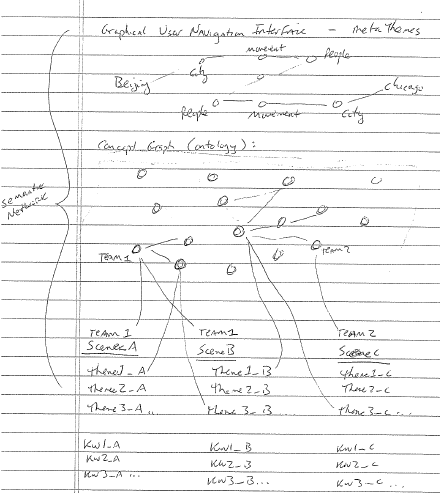 Graphical User Navigation Interface - Meta Themes
movement
City People
Beijing
Chicago
People movement City
Concept Graph (ontology):
Semantic
Network
TEAM 1 TEAM 2
TEAM 1 TEAM 1 TEAM 2
Scene A Scene B Scene C
theme1_A Theme1_B theme1_C
theme2_A theme2_B theme2_C
theme3_A... theme3_B... theme3_C...
KW1_A KW1_B KW1_C
KW2_A KW2_B KW2_C
KW3_A... KW3_B... KW3_C...